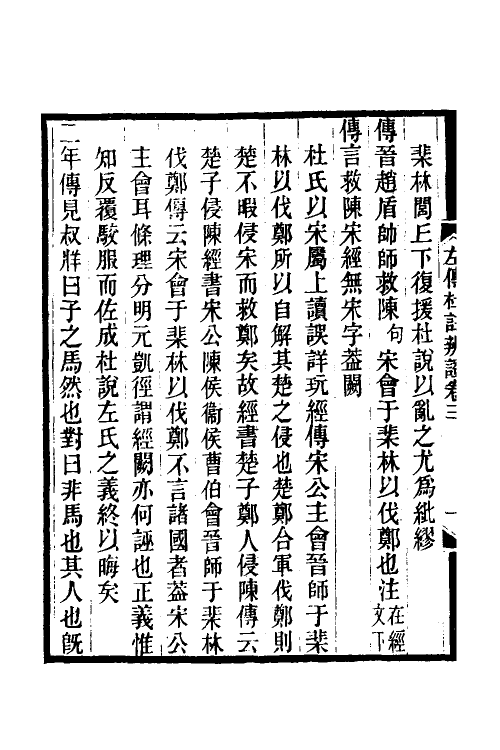 左傳杜註辨證卷三 一
棐林下復援杜說以亂之尤爲紕繆
傳晉趙盾帥師救陳句宋會于棐林以伐鄭也注在經文下
傳言救陳宋經無宋字葢闕
杜氏以宋屬上讀誤詳玩經傳宋公主會晉師于棐
林以伐鄭所以自解其楚之侵也楚鄭合軍伐鄭則
楚不暇侵宋而救鄭矣故經書楚子鄭人侵陳傳云
楚子侵陳經書宋公陳侯衞侯曹伯會晉師于棐林
伐鄭傳云宋會于棐林以伐鄭不言諸國者葢宋公
主會耳條理分明元凱徑謂經闕亦何誣也正義惟
知反覆駮服而佐成杜說左氏之義終以晦矣
二年傳見叔牂曰子之馬然也對曰非馬也其人也旣